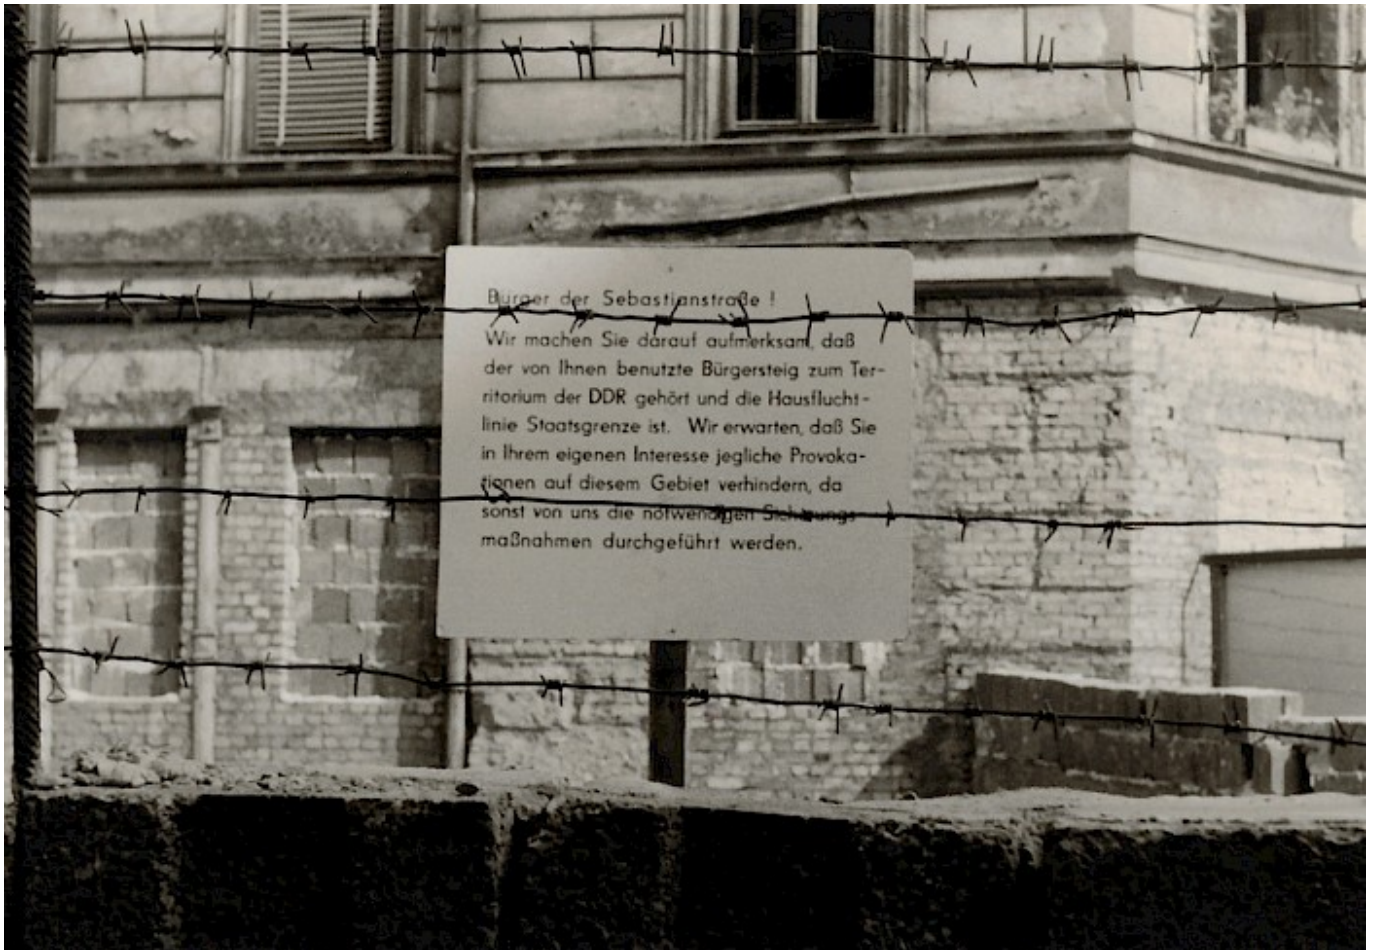 Bürger der Sebastianstraße !
Wir machen Sie darauf aufmerksam, daß
der von Ihnen benutzte Bürgersteig zum Ter-
ritorium der DDR gehört und die Hausflucht-
linie Staatsgrenze ist. Wir erwarten, daß Sie
in Ihrem eigenen Interesse jegliche Provoka-
tionen auf diesem Gebiet verhindern, da
sonst von uns die notwendigen Sicherungs-
maßnahmen durchgeführt werden.